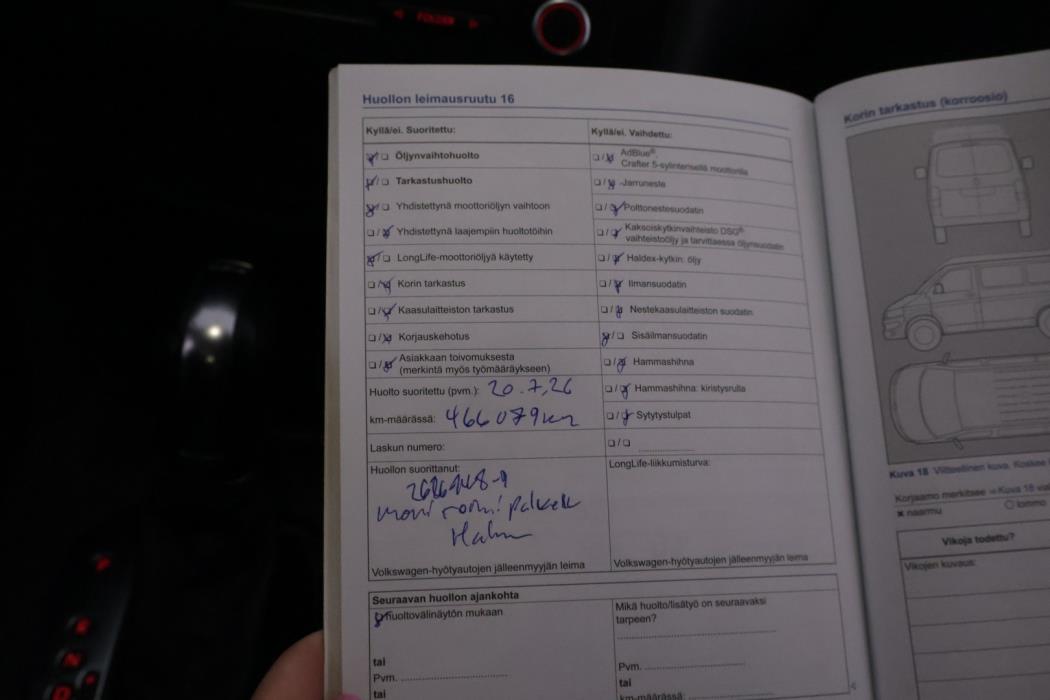 FOLDER
Huollon leimausruutu 16
Kyllä/ei. Suoritettu:
Öljynvaihtohuolto
Tarkastushuolto
Yhdistettynä moottoriöljyn vaihtoon
Yhdistettynä laajempiin huoltotöihin
LongLife-moottoriöljyä käytetty
Korin tarkastus
Kaasulaitteiston tarkastus
Korjauskehotus
Asiakkaan toivomuksesta
(merkintä myös työmääräykseen)
Huolto suoritettu (pvm.): 20.7.26
km-määrässä: 466079km
Laskun numero:
Huollon suorittanut:
Volkswagen-hyötyautojen jälleenmyyjän leima
Kyllä/ei. Vaihdettu:
AdBlue®.
Crafter 5-sylinterisellä moottorilla
Jarruneste
Polttonestesuodatin
Kaksoiskytkinvaihteisto DSG®
vaihteistoöljy ja tarvittaessa öljynsuodatin
Haldex-kytkin: öljy
Ilmansuodatin
Nestekaasulaitteiston suodatin
Sisäilmansuodatin
Hammashihna
Hammashihna: kiristysrulla
Sytytystulpat
LongLife-liikkumisturva:
Volkswagen-hyötyautojen jälleenmyyjän leima
Seuraavan huollon ajankohta
huoltovälinäytön mukaan
tai
Pvm.
tai
Mikä huolto/lisätyö on seuraavaksi
tarpeen?
Pvm.
tai
km-määrässä:
Korin tarkastus (korroosio)
Kuva 18 Viitteellinen kuva. Koskee
Korjaamo merkitsee ⇒Kuva 18
naarmu
lommo
Vikoja todettu?
Vikojen kuvaus:
R
N
D